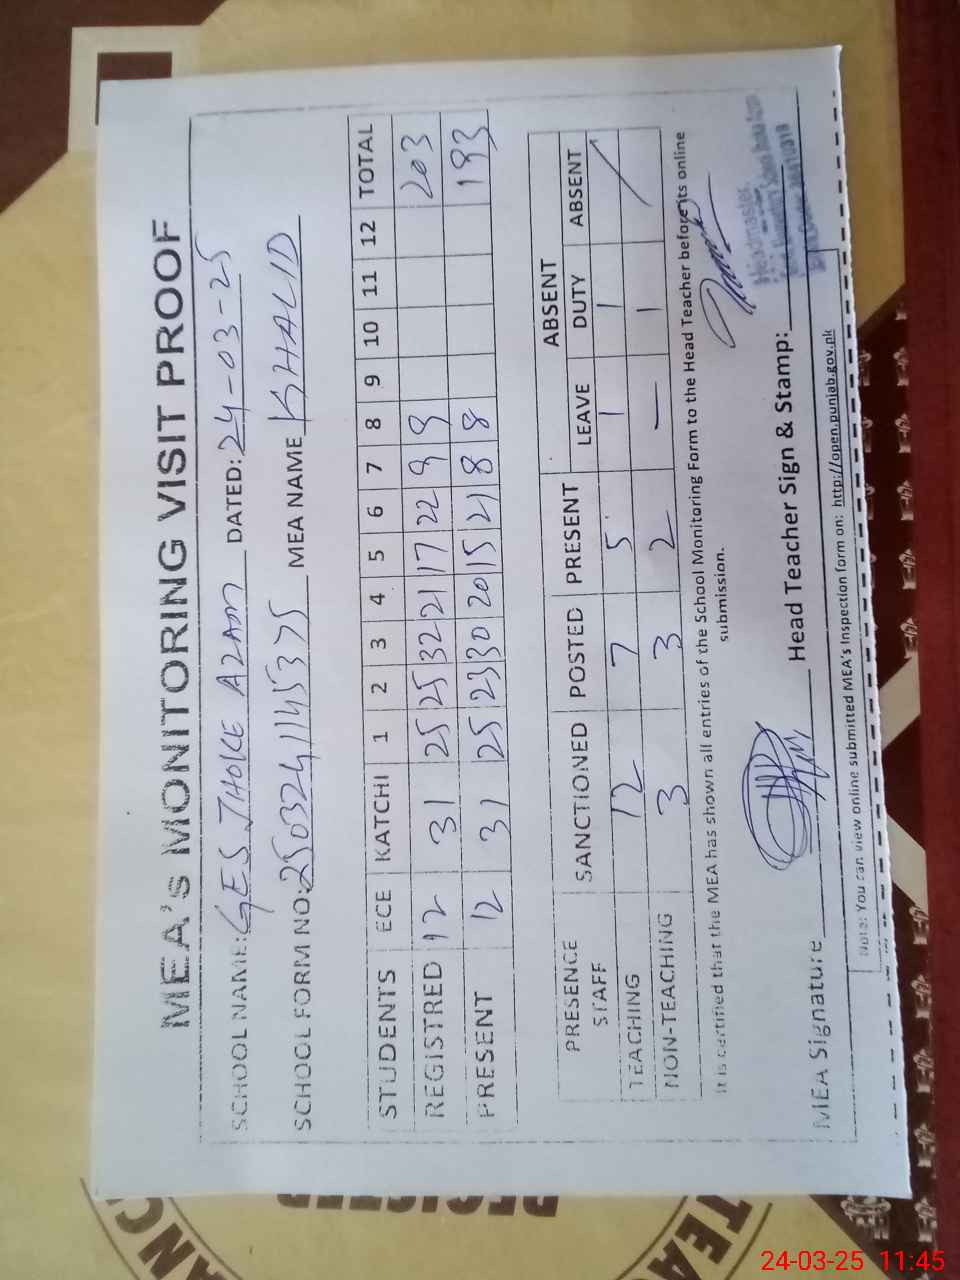 MEA's MONITORING VISIT PROOF
SCHOOL NAME: GES JHOKE AZAM DATED: 24-03-25
SCHOOL FORM NO: 2503241145375 MEA NAME KHALID
STUDENTS ECE KATCHI 1 2 3 4 5 6 7 8 9 10 11 12 TOTAL
REGISTRED 12 31 25 25 32 21 17 22 9 9 203
PRESENT 12 31 25 23 30 20 15 21 8 8 193
PRESENCE STAFF SANCTIONED POSTED PRESENT ABSENT
LEAVE DUTY ABSENT
TEACHING 12 7 5 1 1
NON-TEACHING 3 3 2 — 1
It is certified that the MEA has shown all entries of the School Monitoring Form to the Head Teacher before its online
submission.
MEA Signature Head Teacher Sign & Stamp:
Headmaster
Note: You can view online submitted MEA's Inspection form on: http://open.punjab.gov.pk
REGISTER
24-03-25 11:45